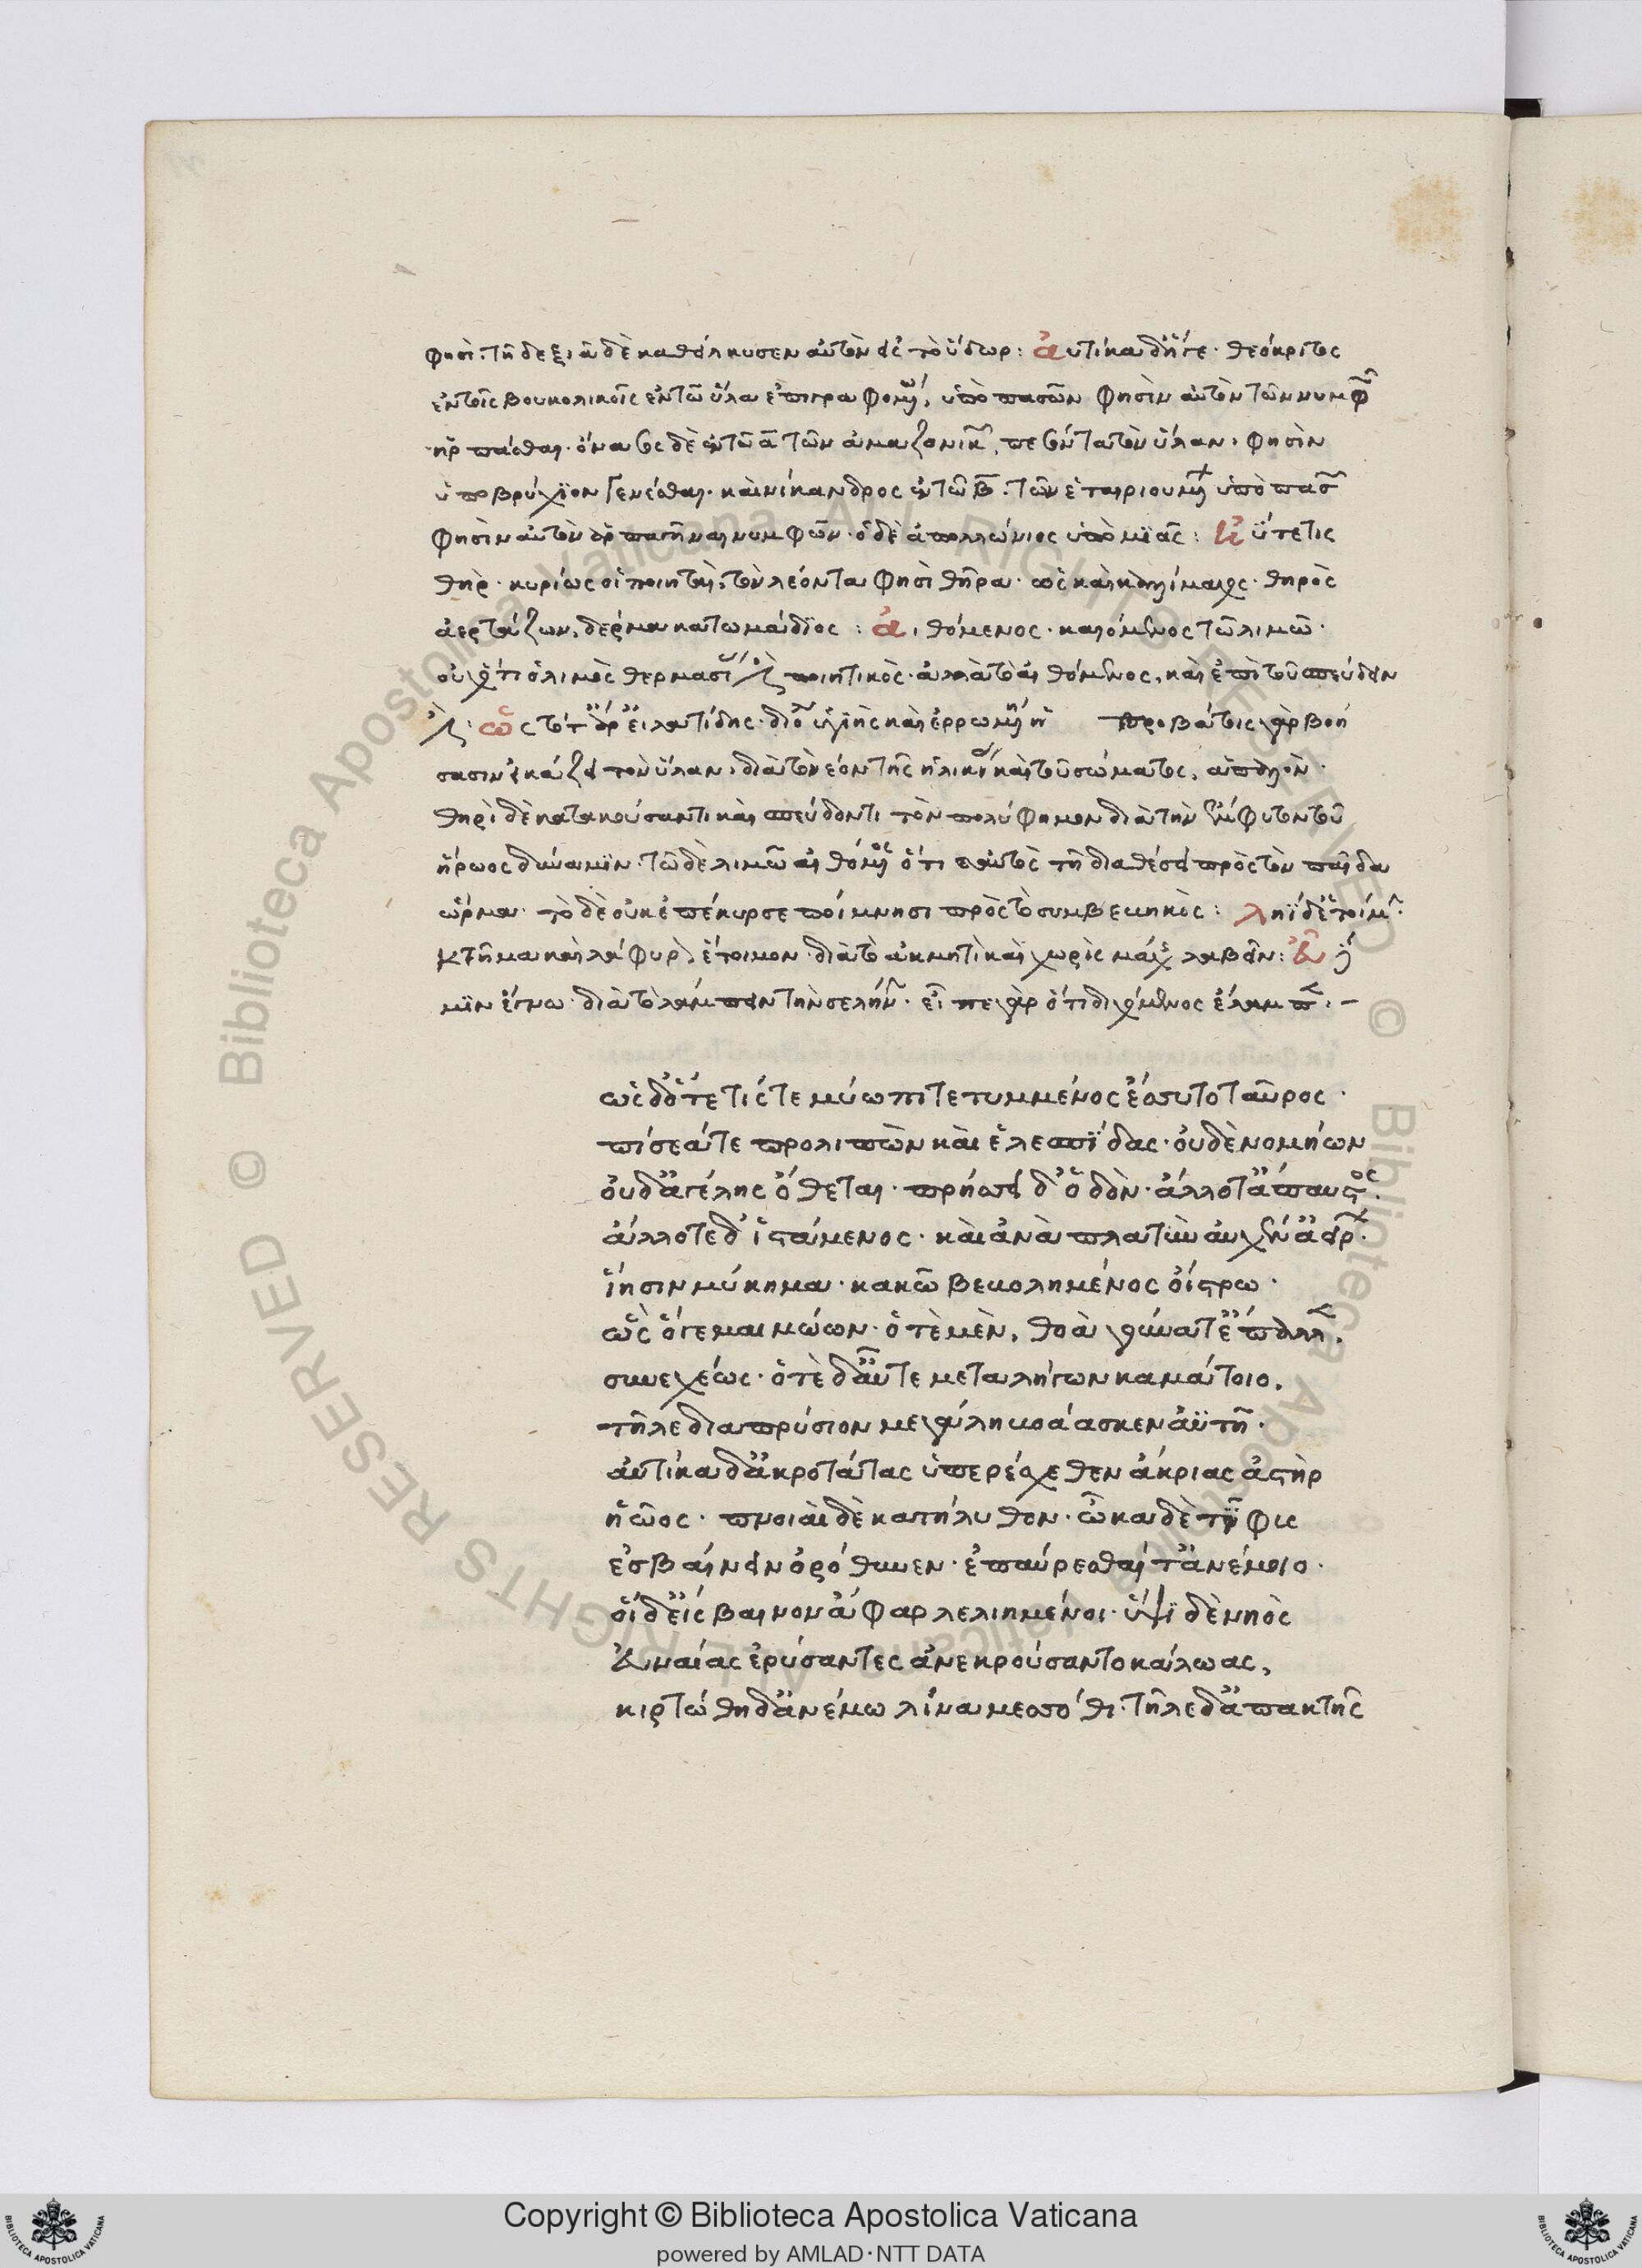 φησί. τῇ δεξιᾷ δὲ καθείλκυσεν αὐτὸν εἰς τὸ ὕδωρ: αὐτίκα δ' ὅγε. θεόκριτος
ἐν τοῖς βουκολικοῖς ἐν τῶ ὕλα ἐπιγραφομ, ὑπὸ πασῶν φησὶν αὐτὸν τῶν νυμφ
ἡρπάσθαι. ὄνασος δὲ ἐν τῶ α τῶν ἀμαζονικ, φησὶν
ὑποβρύχιον γενέσθαι. καὶ νίκανδρος ἐν τῶ β. τῶν ὑπὸ πασ
φησὶν αὐτὸν ἁρπαγῆναι νυμφῶν. ὁ δὲ ἀπολλώνιος ὑπὸ μιᾶς: ἠΰτε τις
θὴρ. κυρίως οἱ ποιηταὶ, τὸν λέοντα φησὶ θῆρα. ὡς καὶ καλλίμαχος. θηρὸς
ἀερτάζων, δέρμα κατωμάδιος: αἰθόμενος. καιόμενος τῶ λιμῶ.
οὐχ ὅτι ὁ λιμὸς θερμασί ποιητικὸς. ἀλλὰ τὸ αἰθόμενος, καὶ ἐπὶ τοῦ σπεύδειν
ὡς τότ' ἄρ' εἰλατίδης. προβάτοις γὰρ βοή
σασιν εἰκάζει τὸν ὕλαν, διὰ τὸ νέον τῆς ἡλικί καὶ τοῦ σώματος, ἁπαλὸν.
θηρὶ δὲ κατακούσαντι καὶ σπεύδοντι τὸν πολύφημον διὰ τὴν ἔμφυτον τοῦ
ἥρωος δύναμιν. τῶ δὲ λιμῶ αἰθόμ ὅτι τῇ διαθέσει πρὸς τὸν παῖδα
ὥρμα. τὸ δὲ οὐκ ἐπέκυρσε ποίμνησι πρὸς τὸ συμβεβηκὸς: ληΐδ' ἑτοίμ.
κτῆμα καὶ λάφυρ, ἕτοιμον. διὰ τὸ ἀκμητὶ καὶ χωρὶς μάχ λαβεῖν:
διὰ τὸ λάμπειν τὴν σελήν. εἶπε γὰρ ὅτι διχόμηνος ἔλαμπ.
ὡς δ' ὅτε τίς τε μύωπι τετυμμένος ἔσσυτο ταῦρος.
πίσεά τε προλιπὼν καὶ ἑλεσπίδας. οὐδὲ νομήων
οὐδ' ἀγέλης ὄθεται. πρήσσει δ' ὁδὸν. ἄλλοτ' ἄπαυστος.
ἄλλοτε δ' ἱστάμενος. καὶ ἀνὰ πλατὺν αὐχέν' ἀείρ.
ἵησιν μύκημα. κακῶ βεβολημένος οἴστρω.
ὣς ὅγε μαιμώων. ὁτὲ μὲν, θοὰ γούνατ' ἔπαλλ.
συνεχέως. ὁτὲ δ' αὖτε μεταλήγων καμάτοιο.
τῆλε διαπρύσιον μεγάλη βοάασκεν ἀϋτῇ.
αὐτίκα δ' ἀκροτάτας ὑπερέσχεθεν ἄκριας ἀστὴρ
ἠῶος. πνοιαὶ δὲ κατήλυθον. ὦκα δὲ τῖφυς
ἐσβαίνειν ὀρόθυνεν. ἐπαύρεσθαί τ' ἀνέμοιο.
οἱ δ' εἴσβαινον ἄφαρ λελιημένοι. ὕψι δὲ νηὸς
εὐναίας ἐρύσαντες ἀνεκρούσαντο κάλωας,
κυρτώθη δ' ἀνέμω λίνα μεσσόθι. τῆλε δ' ἀπ' ἀκτῆς
Copyright © Biblioteca Apostolica Vaticana
powered by AMLAD·NTT DATA